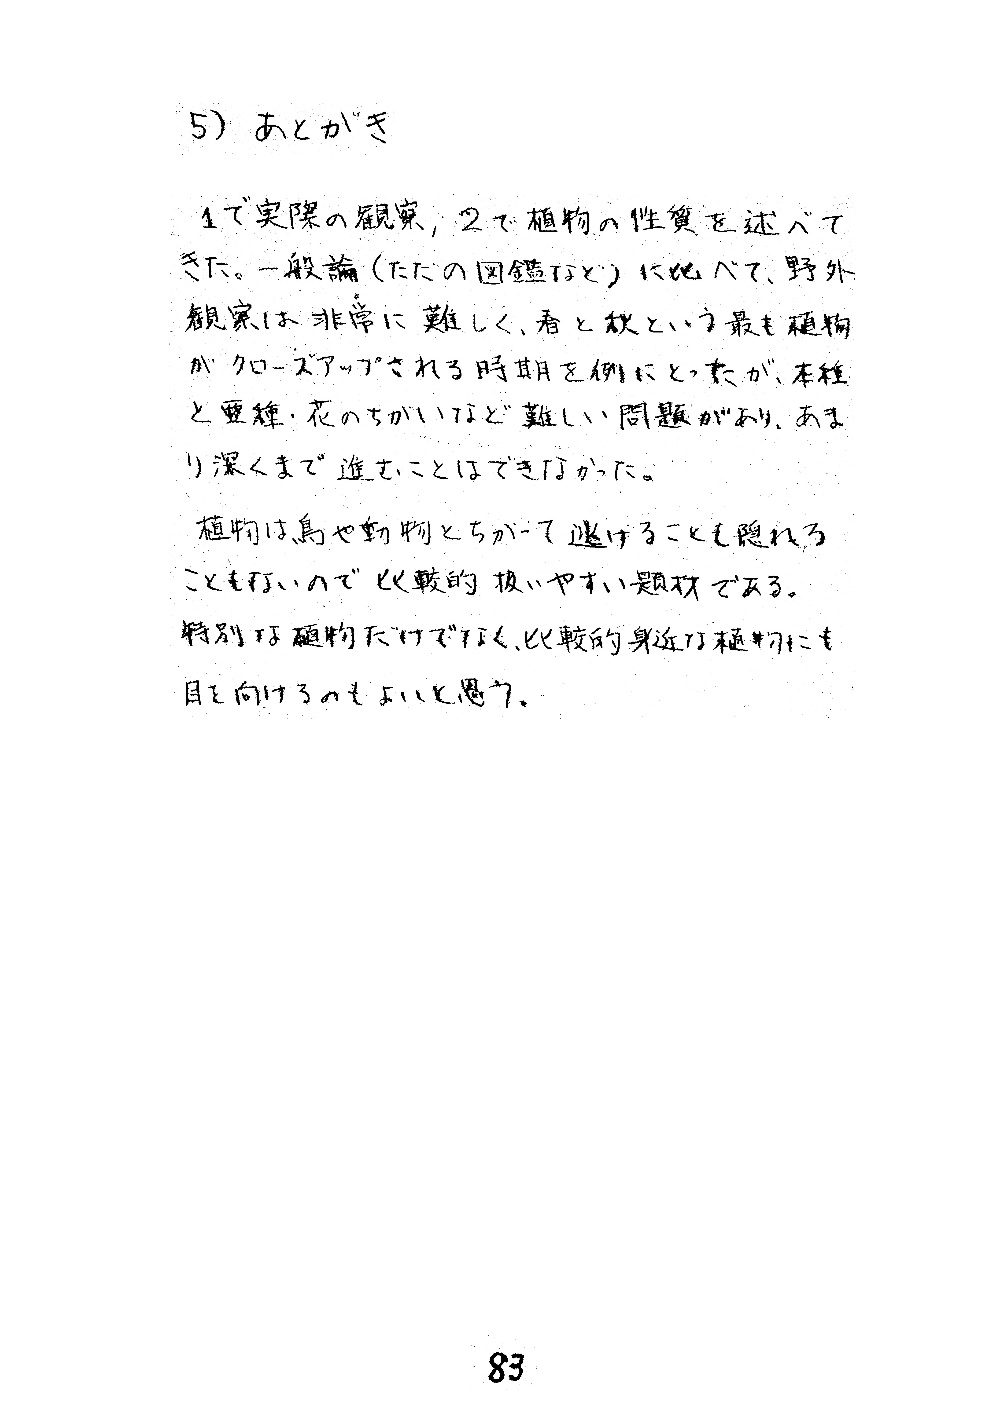 5) あとがき
1で実際の観察, 2で植物の性質を述べて
きた。一般論(ただの図鑑など)に比べて、野外
観察は非常に難しく、春と秋という最も植物
がクローズアップされる時期を例にとったが、本種
と亜種・花のちがいなど難しい問題があり、あま
り深くまで進むことはできなかった。
植物は鳥や動物とちがって逃げることも隠れる
こともないので比較的扱いやすい題材である。
特別な植物だけでなく、比較的身近な植物にも
目を向けるのもよいと思う。
83